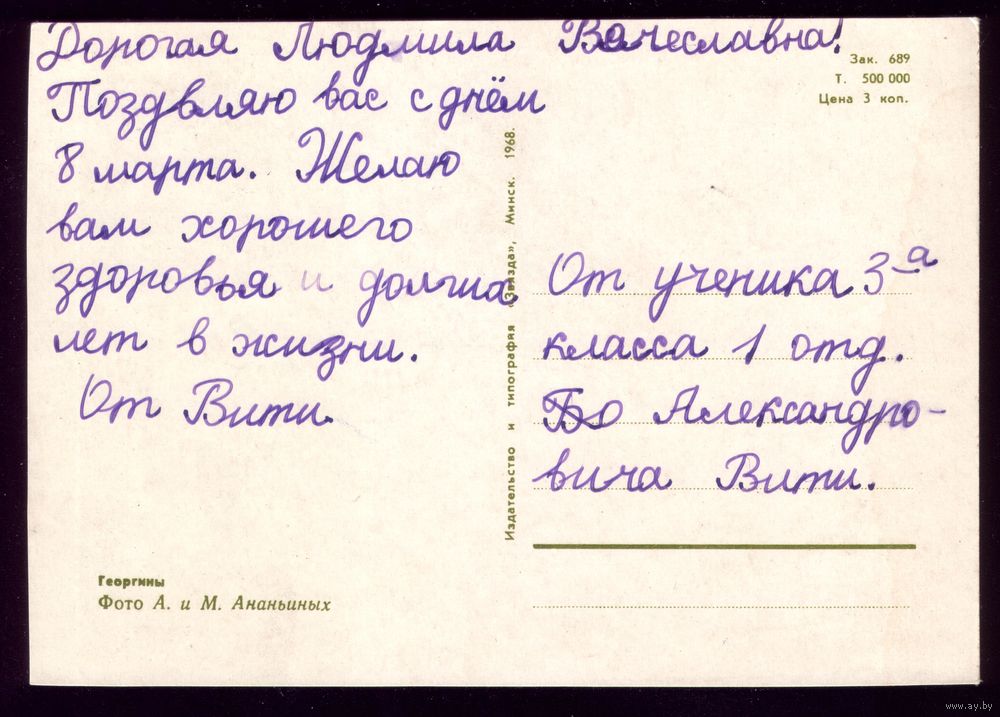 Дорогая Людмила Вячеславна!
Поздвляю вас с днём
8 марта. Желаю
вам хорошего
здоровья и долгиа
лет в жизни.
От Вити.
Георгины
Фото А. и М. Ананьиных
Издательство и типография «Звязда», Минск. 1968.
Зак. 689
Т. 500 000
Цена 3 коп.
От ученика 3-а
класса 1 отд.
Александро-
вича Вити.
www.ay.by